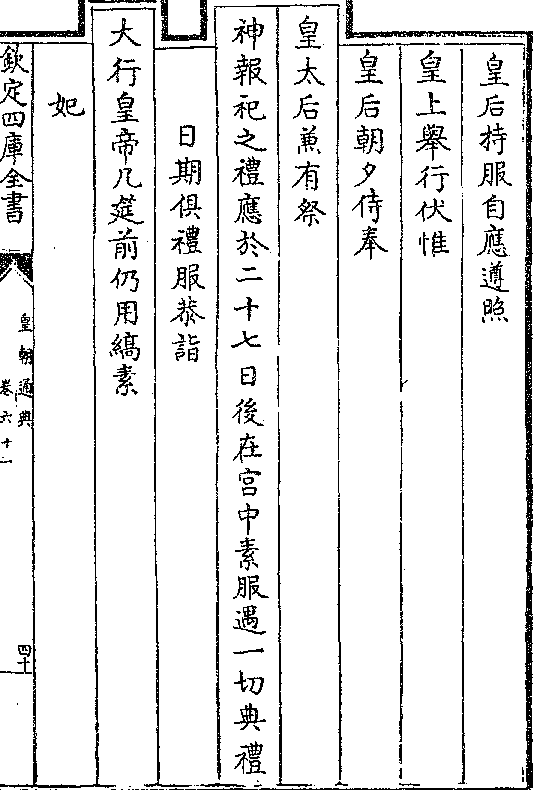 皇后持服自應遵照
皇上舉行伏惟
皇后朝夕侍奉
皇太后兼有祭
神報祀之禮應於二十七日後在宫中素服遇一切典禮
日期俱禮服恭詣
大行皇帝几筵前仍用縞素
妃
欽定四庫全書
皇朝通典
卷六十一
四十